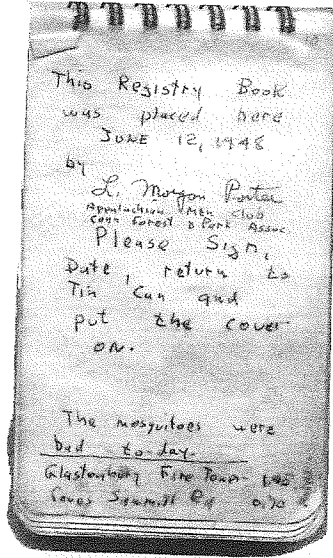 This Registry Book
was placed here
JUNE 12, 1948
by
L. Morgan Porter
Appalachian Mtn Club
Conn Forest & Park Assoc
Please Sign,
Date, return to
Tin Can and
put the cover
on.
The mosquitoes were
bad to-day.
Glastonbury Fire Tower
Summit